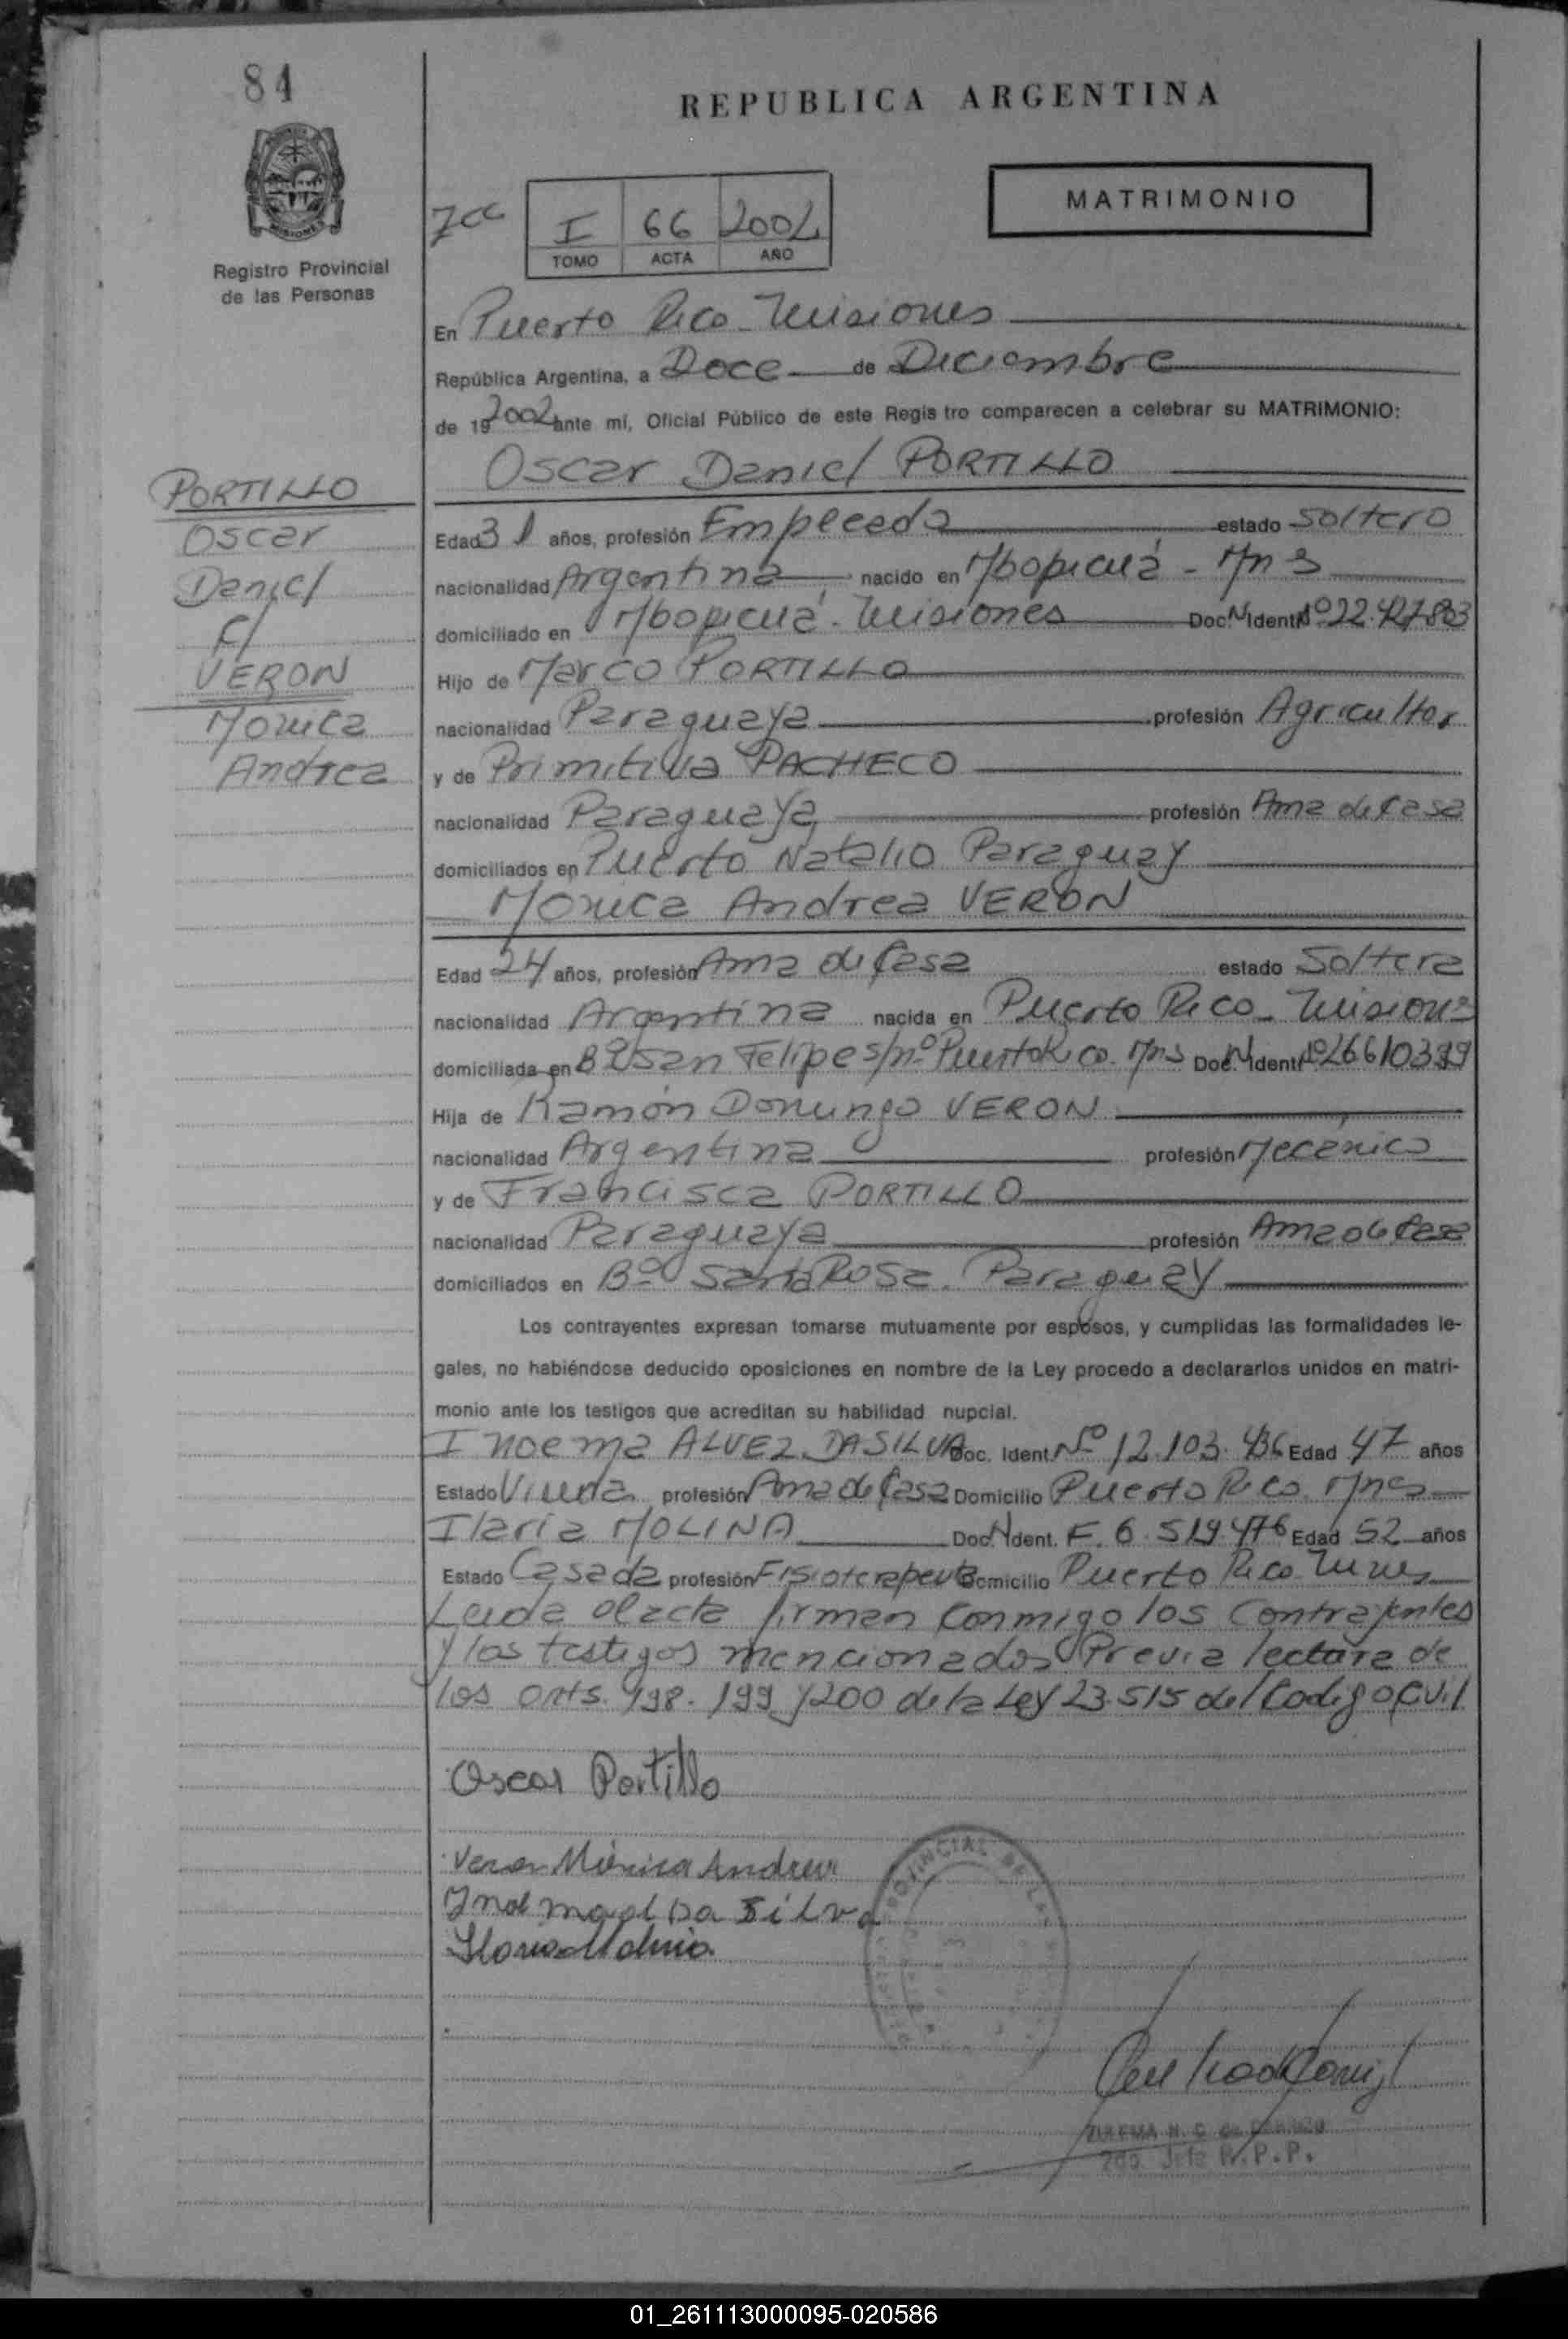 84
REPUBLICA ARGENTINA
MATRIMONIO
I 66 2002
TOMO ACTA AÑO
Registro Provincial
de las Personas
En Puerto Rico - Misiones
República Argentina, a Doce de Diciembre
de 19 2002 ante mí, Oficial Público de este Regis tro comparecen a celebrar su MATRIMONIO:
Oscar Daniel PORTILLO
PORTILLO
Oscar
Daniel
c/
VERON
Monica
Andrea
Edad 31 años, profesión Empleado estado Soltero
nacionalidad Argentina nacido en Mbopicuá - Mnes
domiciliado en Mbopicuá - Misiones Doc. N Ident. Nº 22.427.803
Hijo de Marco PORTILLO
nacionalidad Paraguaya profesión Agricultor
y de Primitiva PACHECO
nacionalidad Paraguaya profesión Ama de Casa
domiciliados en Puerto Natalio Paraguay
Mónica Andrea VERON
Edad 24 años, profesión Ama de Casa estado Soltera
nacionalidad Argentina nacida en Puerto Rico - Misiones
domiciliada en Bº San Felipe s/nº Puerto Rico. Mns Doc. N Ident. Nº 26610399
Hija de Ramón Domingo VERON
nacionalidad Argentina profesión Mecánico
y de Francisca PORTILLO
nacionalidad Paraguaya profesión Ama de Casa
domiciliados en Bº Santa Rosa. Paraguay
Los contrayentes expresan tomarse mutuamente por esposos, y cumplidas las formalidades le-
gales, no habiéndose deducido oposiciones en nombre de la Ley procedo a declararlos unidos en matri-
monio ante los testigos que acreditan su habilidad nupcial.
Inoema ALVEZ DA SILVA Doc. Ident. Nº 12.103.436 Edad 47 años
Estado Viuda profesión Ama de Casa Domicilio Puerto Rico. Mnes
Ilaria MOLINA Doc. N Ident. F. 6.519.476 Edad 52 años
Estado Casada profesión Fisioterapeuta Domicilio Puerto Rico Mnes
Leida el acta firman conmigo los Contrayentes
y los testigos mencionados Previa lectura de
los arts. 198. 199 y 200 de la Ley 23.515 del Codigo Civil
Oscar Portillo
Veron Mónica Andrea
da Silva
Ilaria Molina
PROVINCIAL DE LAS
ZULEMA N. C. de
2do. Jefe R.P.P.
01_261113000095-020586